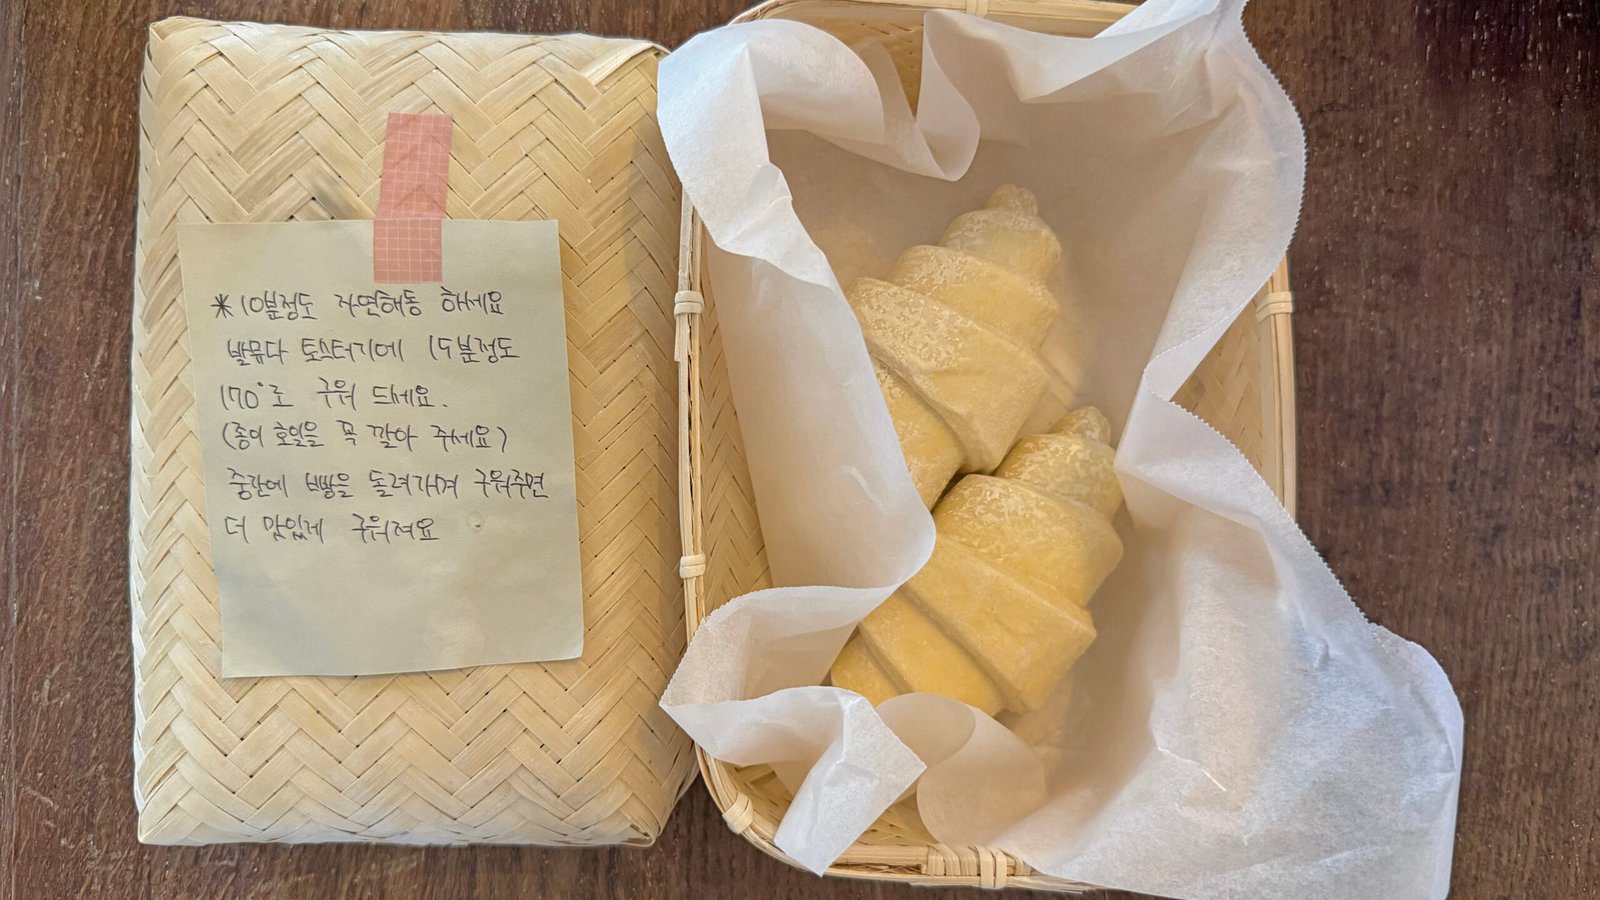 *10분정도 자연해동 해세요
발뮤다 토스터기에 15분정도
170°로 구워 드세요.
(종이 호일을 꼭 깔아 주세요)
중간에 빵을 돌려가며 구워주면
더 맛있게 구워져요